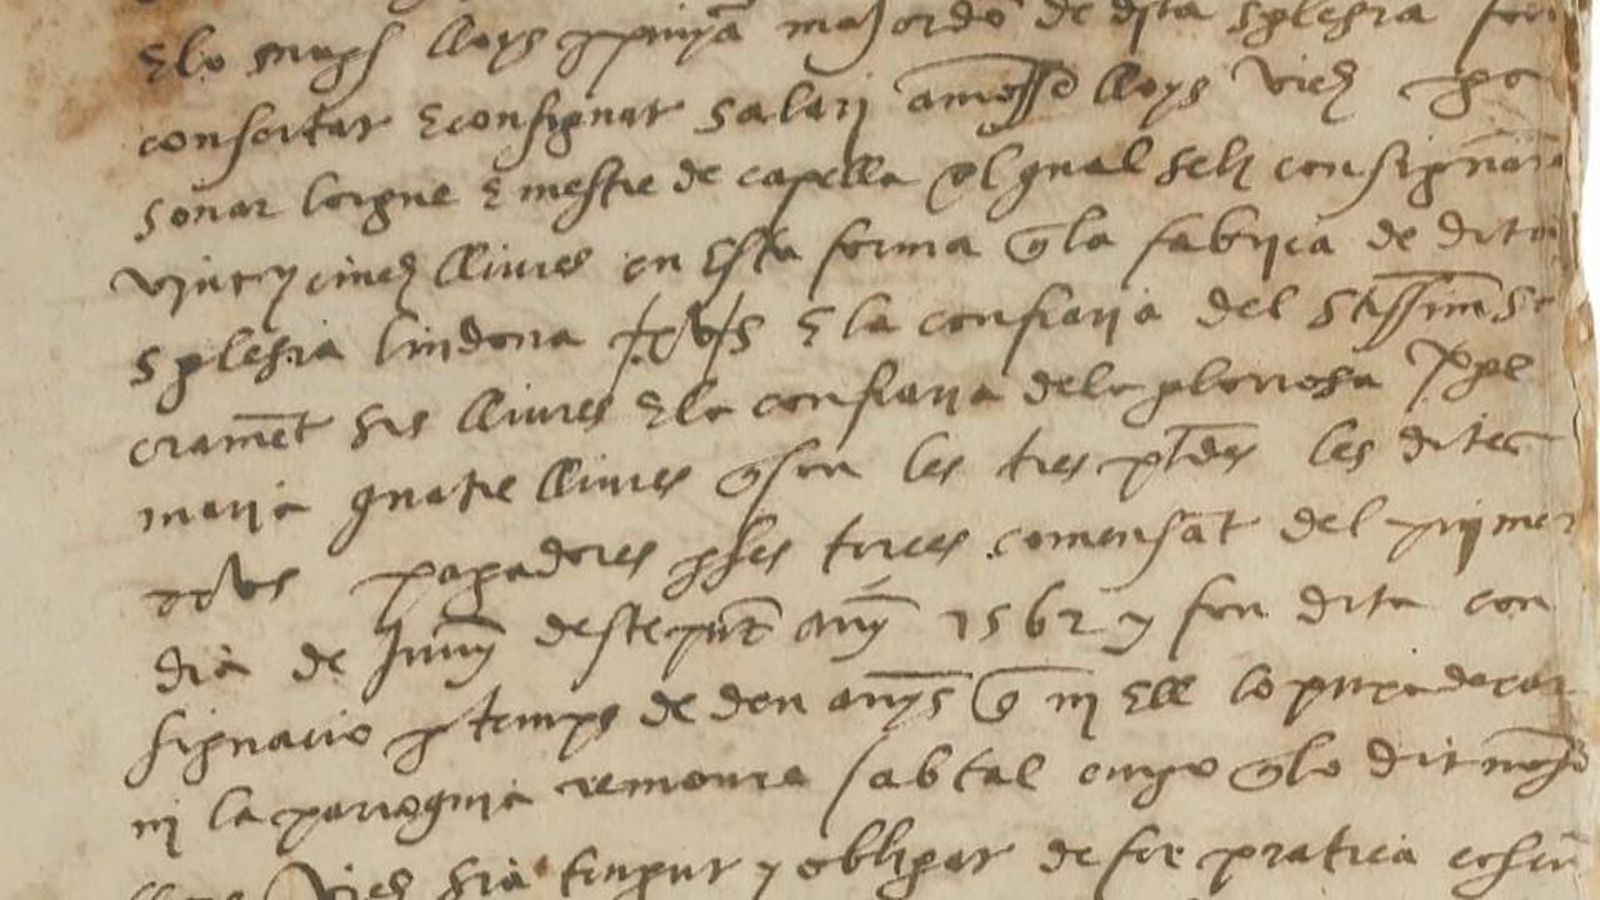 e lo magch lloys ppinya majordo de dita sglesia fon
consertar e consignar salari a mosse lloys vich p
sonar lorgue e mestre de capella pl qual seli consignara
vint y cinch lliures en esta forma q la fabrica de dita
sglesia li n dona e la confraria del stissim sa
crament sis lliures e la confraria de la gloriosa vge
maria quatre lliures q son les tres ptides les dites
pagadores p ses terces comensat del primer
dia de Juny deste pnt any 1562 y fon dita con
signacio p temps de deu anys q ni ell lo puga dexar
ni la parroquia remoure sab tal empo q lo dit mosse
lloys vich sia tingut y obligat de fer pratica